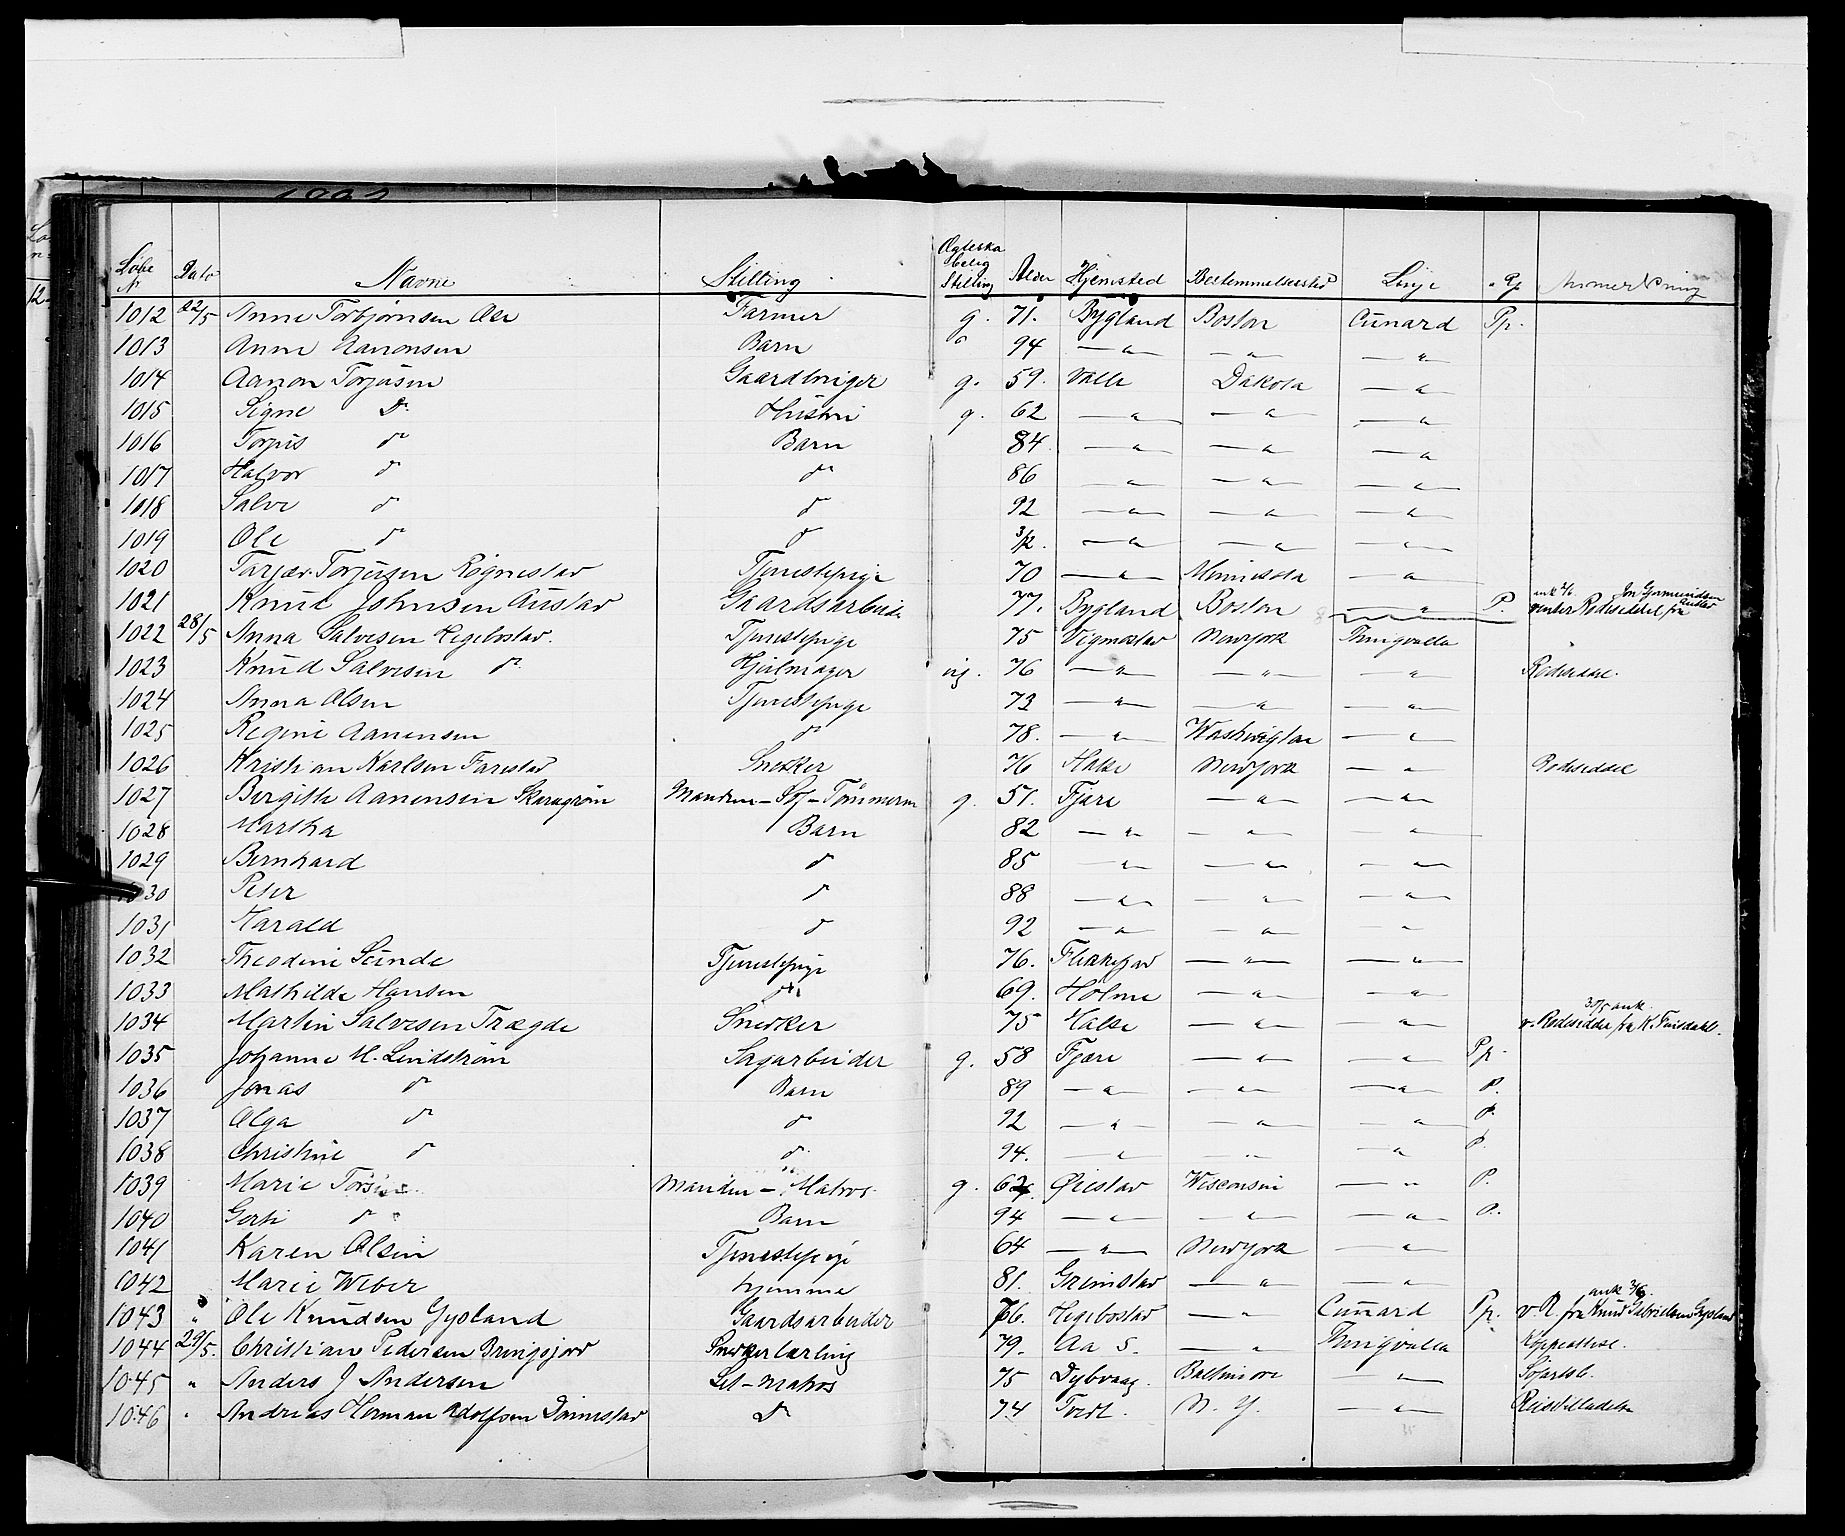 Løbe Nr Dato Navne Stilling Ægteskabelig Stilling Alder Hjemsted Bestemmelsessted Linje Pp Anmerkning
1012 22/5 Anne Torbjørnsen Ose Farmer g. 71. Bygland Boston Cunard Pp.
1013 Anne Aanonsen Barn 94 — " — — " — — "
1014 Aanon Torjusen Gaardbruger g. 59. Valle Dakota — "
1015 Signe Do Hustru g. 62 — " — — " — — " —
1016 Torjus do Barn 84 — " — — " — — " —
1017 Halvor do do 86 — " — — " — — " —
1018 Salve do do 92 — " — — " — — " —
1019 Ole do do 3/12. — " — — " — — " —
1020 Tarjær Torjusen Rognestad Tjenestepige 70 — " — Minnesota — " —
1021 Knut Johnsen Austad Gaardsarbeider 77. Bygland Boston — " — P. venter Rodeseddel fra
1022 28/5 Anna Salvesen Hegebostad. Tjenestepige 75 Vigmostad Newyork Thingvalla
1023 Knud Salvesen do Hjulmager ug. 76 — " — — " — — " — Rodeseddel.
1024 Anna Olsen Tjenestepige 73 — " — — " — — " —
1025 Regine Aanensen do 78. — " — Washington — " —
1026 Kristian Karlsen Farestad Snekker 76 Halse Newyork — " — Rodeseddel
1027 Bergithe Aanensen Manden - - Tømmerm g. 51. Fjære — " — — " —
1028 Martha Barn 82 — " — — " — — " —
1029 Bernhard do 85 — " — — " — — " —
1030 Peter do 88 — " — — " — — " —
1031 Harald do 92 — " — — " — "
1032 Theodine Sunde Tjenestepige 76. Flekkefjord — " — — " —
1033 Mathilde Hansen do 69. Holme — " — — " —
30/5 ank.
1034 Martin Salvesen Trægde Snekker 75 Halse — " — — " — v. Rodeseddel fra K. Finsdahl.
1035 Johanne M. Lindstrøm Sagarbeider g. 58 Fjære — " — — " Pp.
1036 Jonas do Barn 89 — " — — " — — " — P.
1037 Olga do do 92 — " — — " — — " — P.
1038 Christine do do. 94. — " — " — " P.
1039 Marie Manden - Matros. g. 62. Øiestad Wisconsin — " P.
1040 do Barn 94 — " — — " — — " — P.
1041 Karen Olsen Tjenestepige 64 — " — Newyork — " —
1042 Marie Weber hjemme 81. Grimstad — " — — " —
ank 3/6.
1043 " Ole Knudsen Gysland Gaardsarbeider 76. Hegebostad — " Cunard Pp. v R. fra Knud Gabrielsen Gysland
1044 29/5. Christian Pedersen Bringsjord Snekkerlærling 79. Aa S. — " Thingvalla Koppeattest.
1045 " Anders J Andersen Let-Matros 75 Dybvaag. Baltimore — " — Søfartsb.
1046 " Andreas Herman Adolfsen Do 74 Tvedt. N. Y. — " — Reisetilladelse